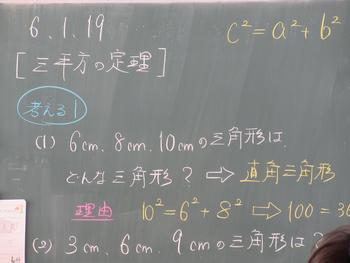 6.1.19
c² = a² + b²
[三平方の定理]
考える1
(1) 6cm、8cm、10cmの三角形は、
どんな三角形？ ⇨ 直角三角形
理由 10² = 6² + 8² ⇨ 100 = 36
(2) 3cm、6cm、9cmの三角形は？